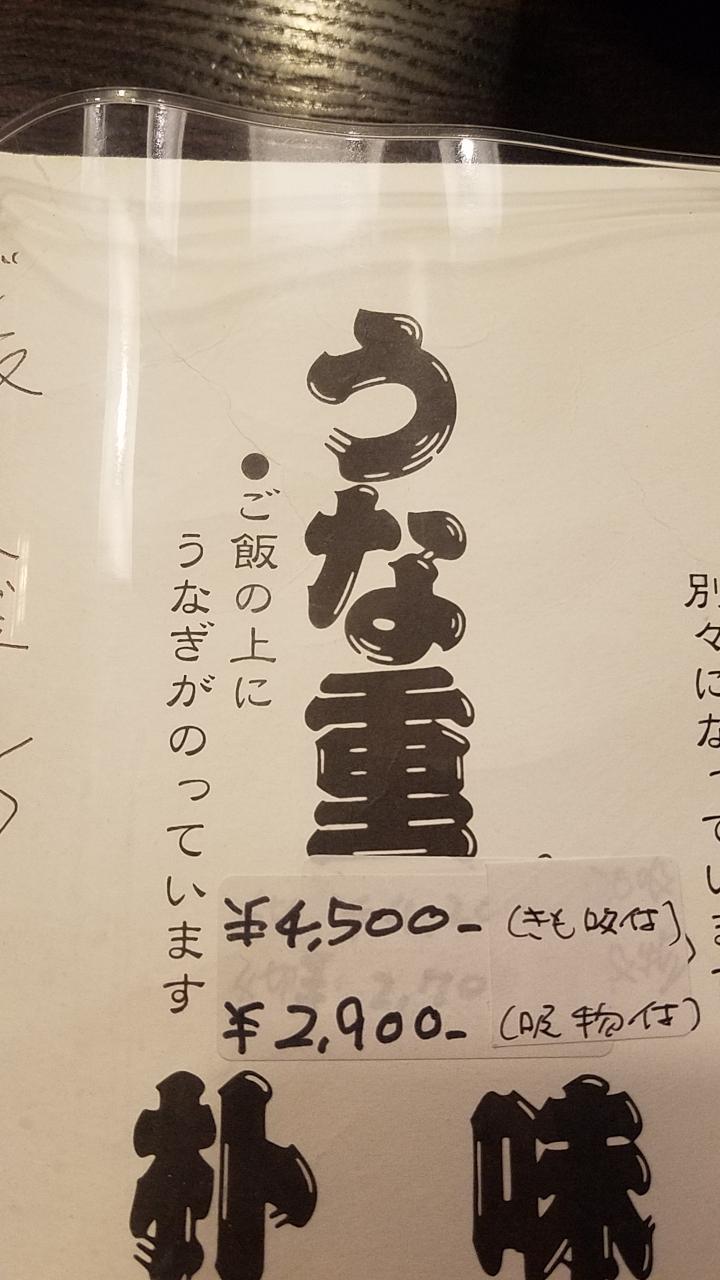 別々になっています
うな重
●ご飯の上に
うなぎがのっています
¥4,500- (きも吸付)
¥2,900- (吸物付)
味
朴